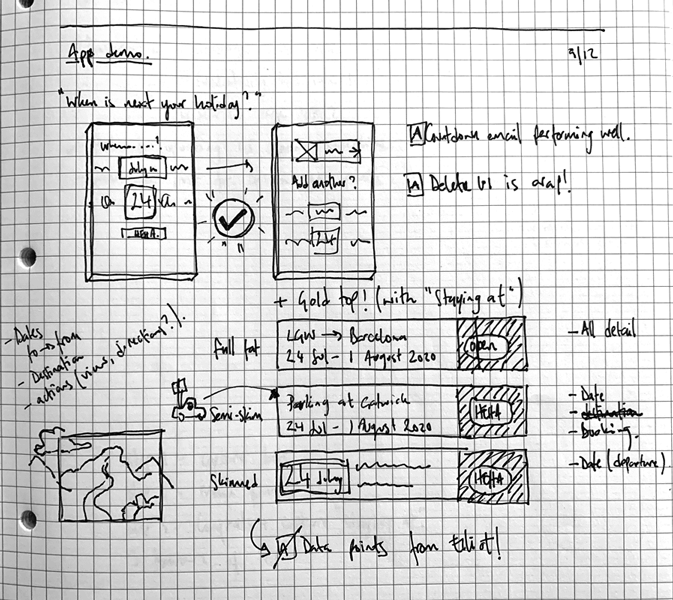 App demo.
9/12
"When is next your holiday?"
when......?
July
24
HEHA.
Add another?
24
A Countdown email performing well.
A Delete UI is crap!
+ Gold top! (with "Staying at")
- Dates
to → from
- Destination
- actions (view, directions?).
Full fat
LGW → Barcelona
24 Jul - 1 August 2020
open
- All detail
Semi-skim
Parking at Gatwick
24 Jul - 1 August 2020
HEHA
- Date
- destination
- Booking.
Skimmed
24 July
HEHA
- Date (departure)
A Data points from Elliot!